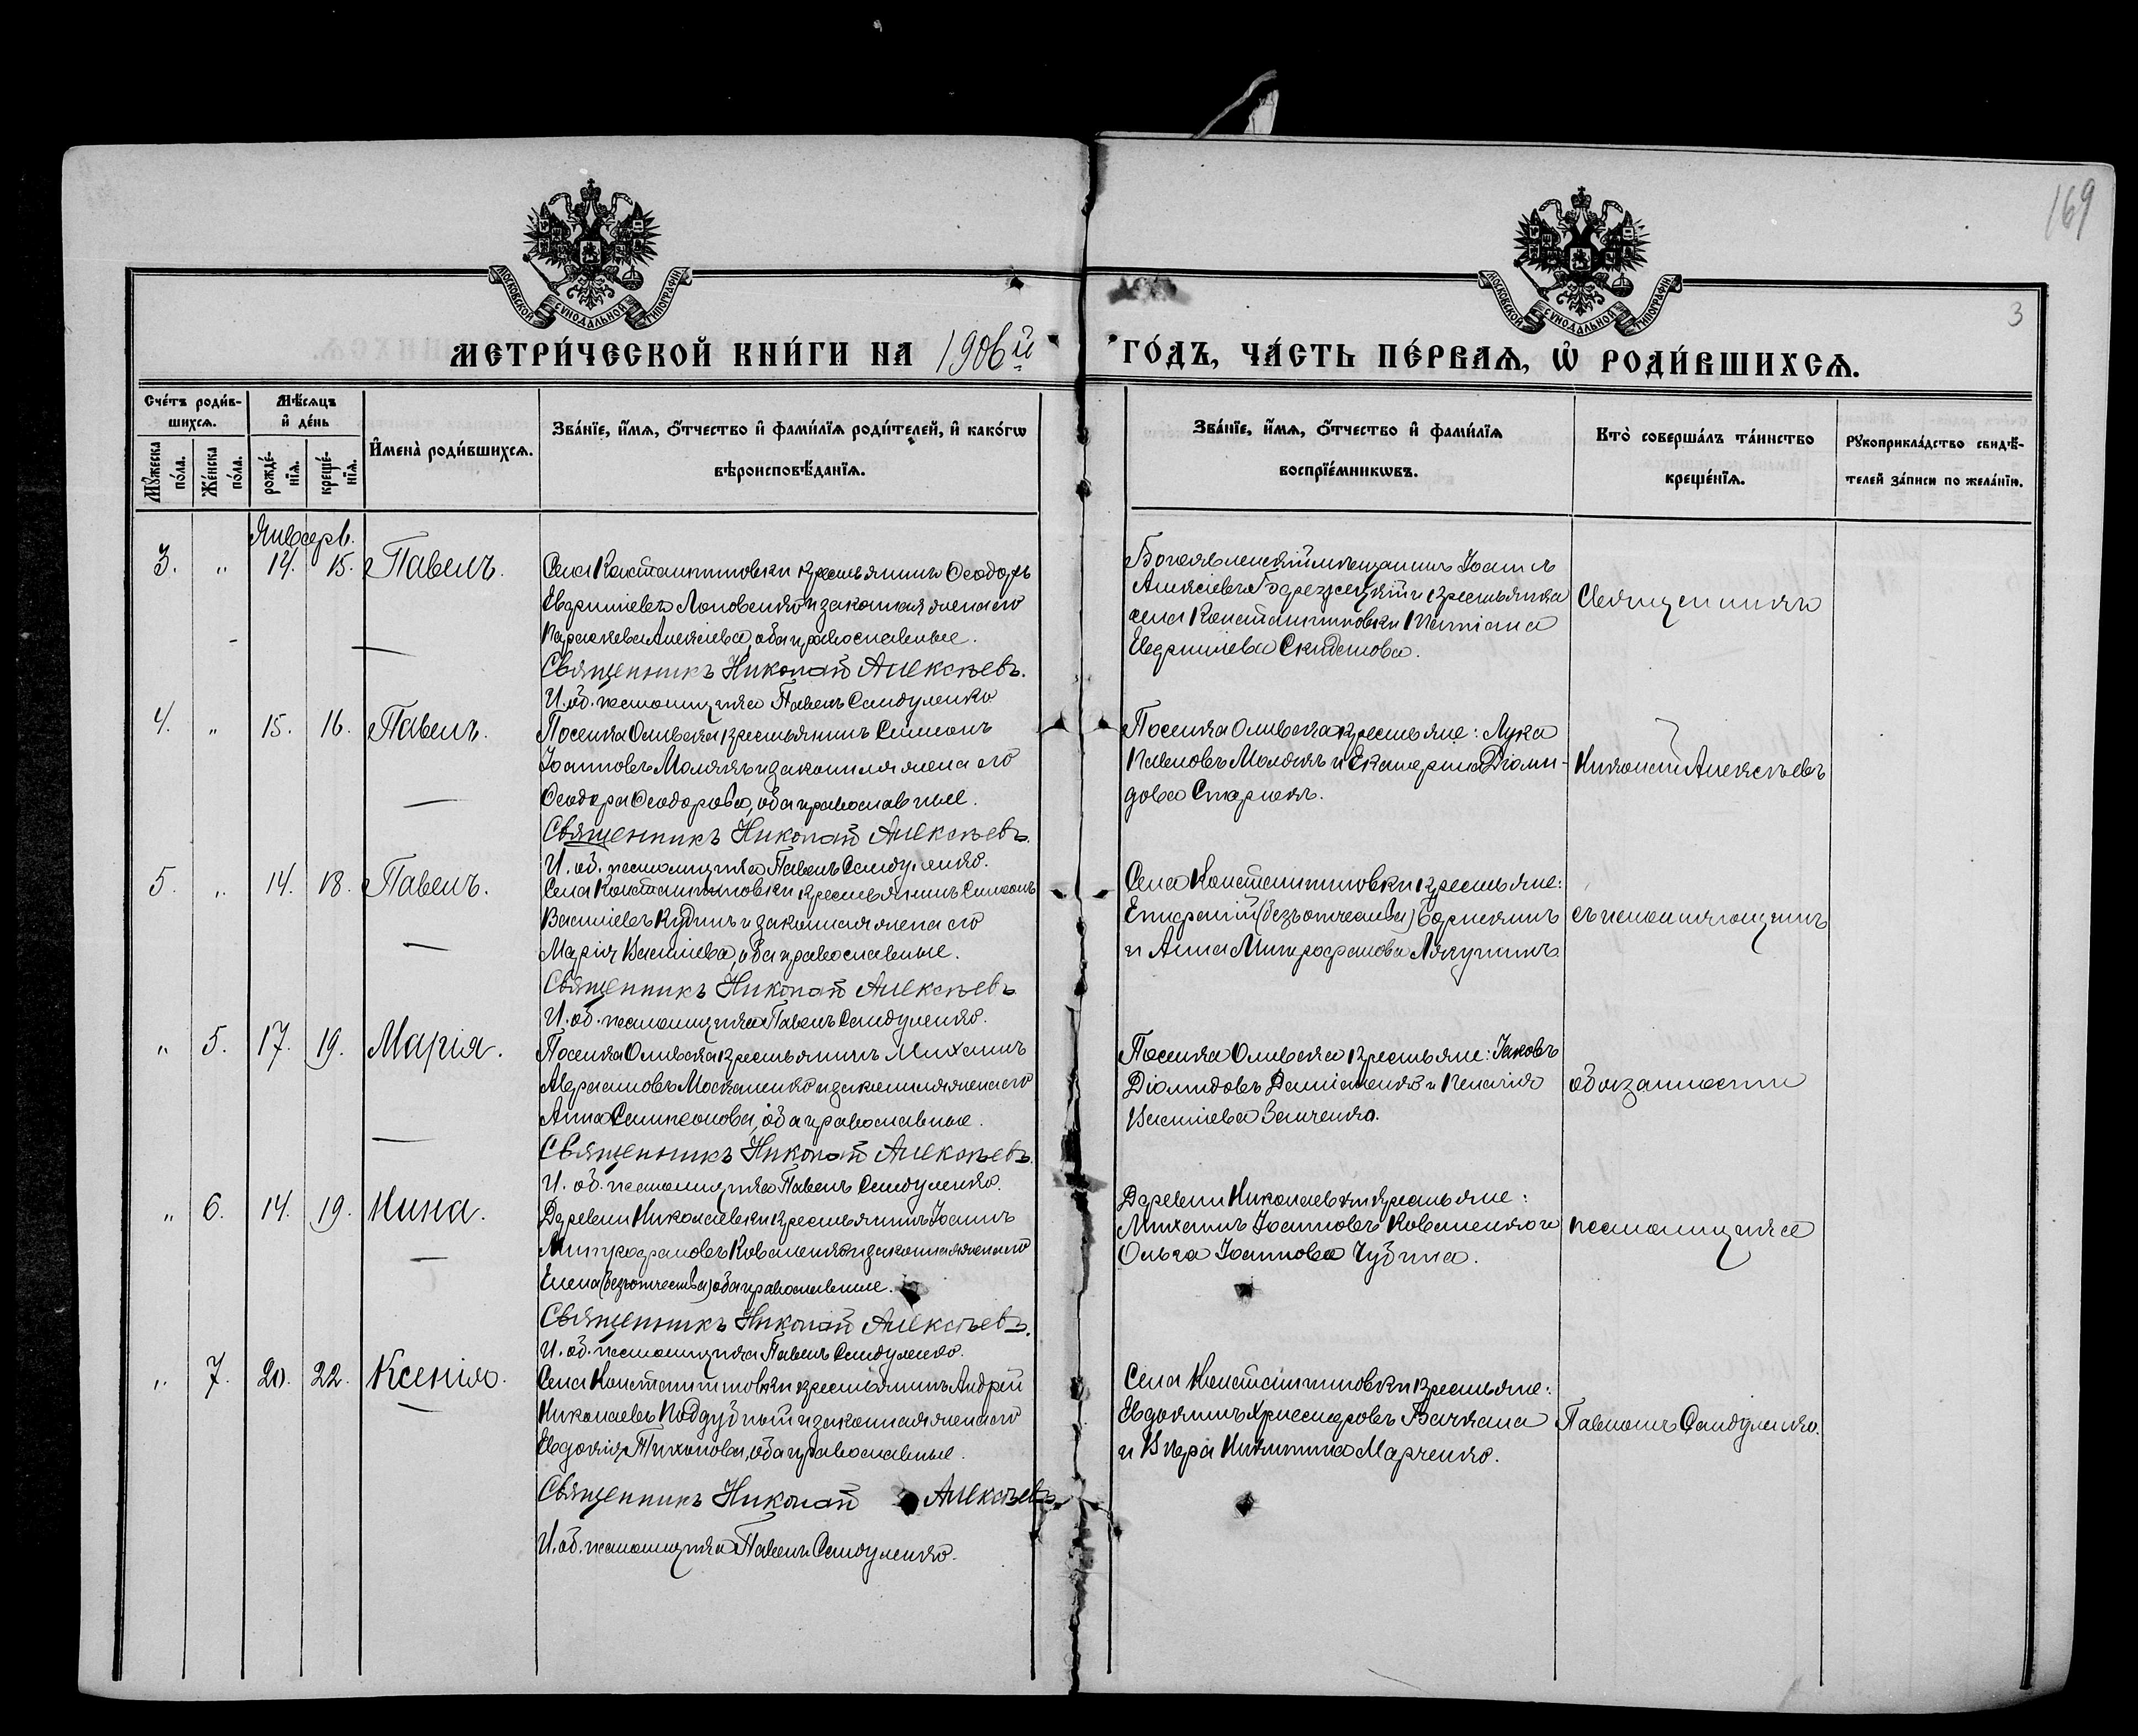 169
МОСКОВСКОЙ СѴНОДАЛЬНОЙ ТИПОГРАФІИ
МОСКОВСКОЙ СѴНОДАЛЬНОЙ ТИПОГРАФІИ
3
МЕТРИ́ЧЕСКОЙ КНИ́ГИ НА 1906й ГО́ДЪ, ЧА́СТЬ ПЕ́РВАѦ, Ѡ҆ РОДИ́ВШИХСѦ.
Сче́тъ роди́в-
шихсѧ.
Мꙋ́жеска по́ла.
Же́нска по́ла.
Мѣ́сѧцъ
и҆ де́нь
рожде́-
нїѧ.
креще́-
нїѧ.
И҆мена̀ роди́вшихсѧ.
Зва́нїе, и҆́мѧ, ѻ҆́тчество и҆ фами́лїѧ роди́телей, и҆ како́гѡ
вѣроисповѣ́данїѧ.
Зва́нїе, и҆́мѧ, ѻ҆́тчество и҆ фами́лїѧ
воспрїе́мникѡвъ.
Кто̀ соверша́лъ та́инство
креще́нїѧ.
Рꙋкоприкла́дство свидѣ́-
телей за́писи по жела́нїю.
Январь.
3. „ 14. 15. Павелъ.
Села Константиновки крестьянинъ Ѳеодоръ
Евфиміевъ и законная жена его
Параскева Алексіева, оба православные.
Священникъ Николай Алексѣевъ.
И. об. псаломщика Павелъ Сандуленко
Богоявленскій мѣщанинъ Іоаннъ
Алексіевъ и крестьянка
села Константиновки
Евфиміева
Священникъ
4. „ 15. 16. Павелъ.
Поселка Ольвска крестьянинъ Симеонъ
Іоанновъ и законная жена его
Ѳеодора Ѳеодорова, оба православные.
Священникъ Николай Алексѣевъ.
И. об. псаломщика Павелъ Сандуленко.
Поселка Ольвска крестьяне: Лука
Павловъ и Екатерина Діоми-
дова
Николай Алексѣевъ
5. „ 14. 18. Павелъ.
Села Константиновки крестьянинъ Симеонъ
Василіевъ и законная жена его
Марія Василіева, оба православные.
Священникъ Николай Алексѣевъ
И. об. псаломщика Павелъ Сандуленко.
Села Константиновки крестьяне:
(безъ отчества)
и Анна Митрофанова
съ исполняющимъ
„ 5. 17. 19. Марія.
Поселка Ольвска крестьянинъ Михаилъ
и законная жена его
Анна Симеонова, оба православные.
Священникъ Николай Алексѣевъ.
И. об. псаломщика Павелъ Сандуленко.
Поселка Ольвска крестьяне: Іаковъ
Діомидовъ и Пелагія
Василіева
обязанности
„ 6. 14. 19. Нина.
Деревни Николаевки крестьянинъ Іоаннъ
Митрофановъ Коваленко и законная жена его
Елена (безъ отчества) оба православные.
Священникъ Николай Алексѣевъ.
И. об. псаломщика Павелъ Сандуленко.
Деревни Николаевки крестьяне:
Михаилъ Іоанновъ Коваленко и
Ольга Іоаннова Чубина.
псаломщика
„ 7. 20. 22. Ксенія.
Села Константиновки крестьянинъ Андрей
Николаевъ Поддубный и законная жена его
Евдокія Тихонова, оба православные.
Священникъ Николай Алексѣевъ
И. об. псаломщика Павелъ Сандуленко.
Села Константиновки крестьяне:
и Вѣра Марченко.
Павломъ Сандуленко.